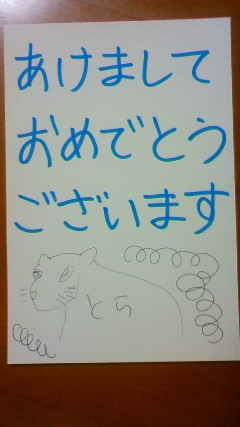 あけまして
おめでとう
ございます
とら